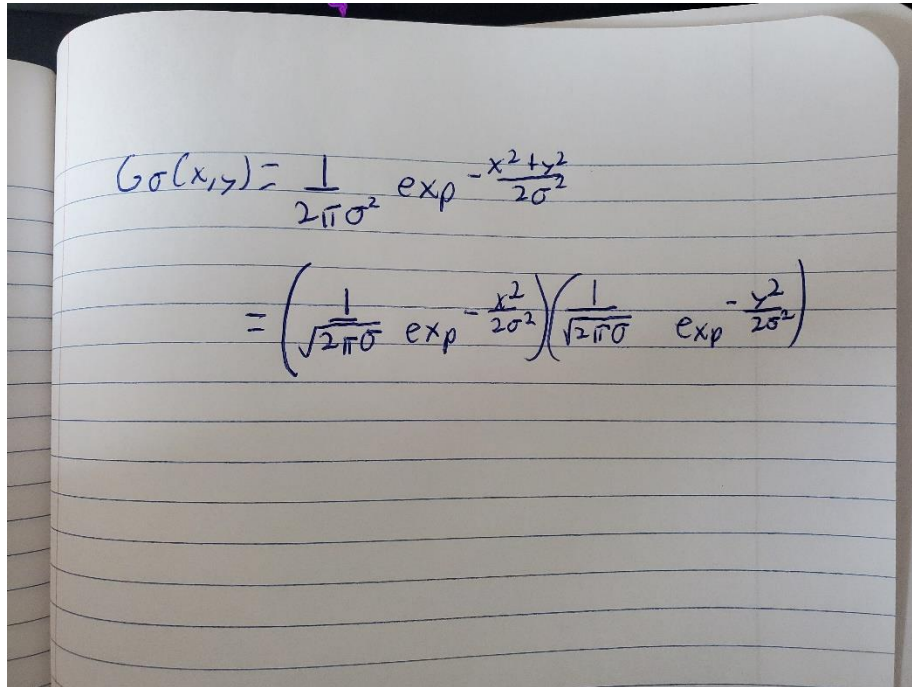 Gσ(x,y) = 1/(2πσ²) exp^(-(x²+y²)/(2σ²))
= (1/(√(2πσ)) exp^(-x²/(2σ²)))(1/(√(2πσ)) exp^(-y²/(2σ²)))